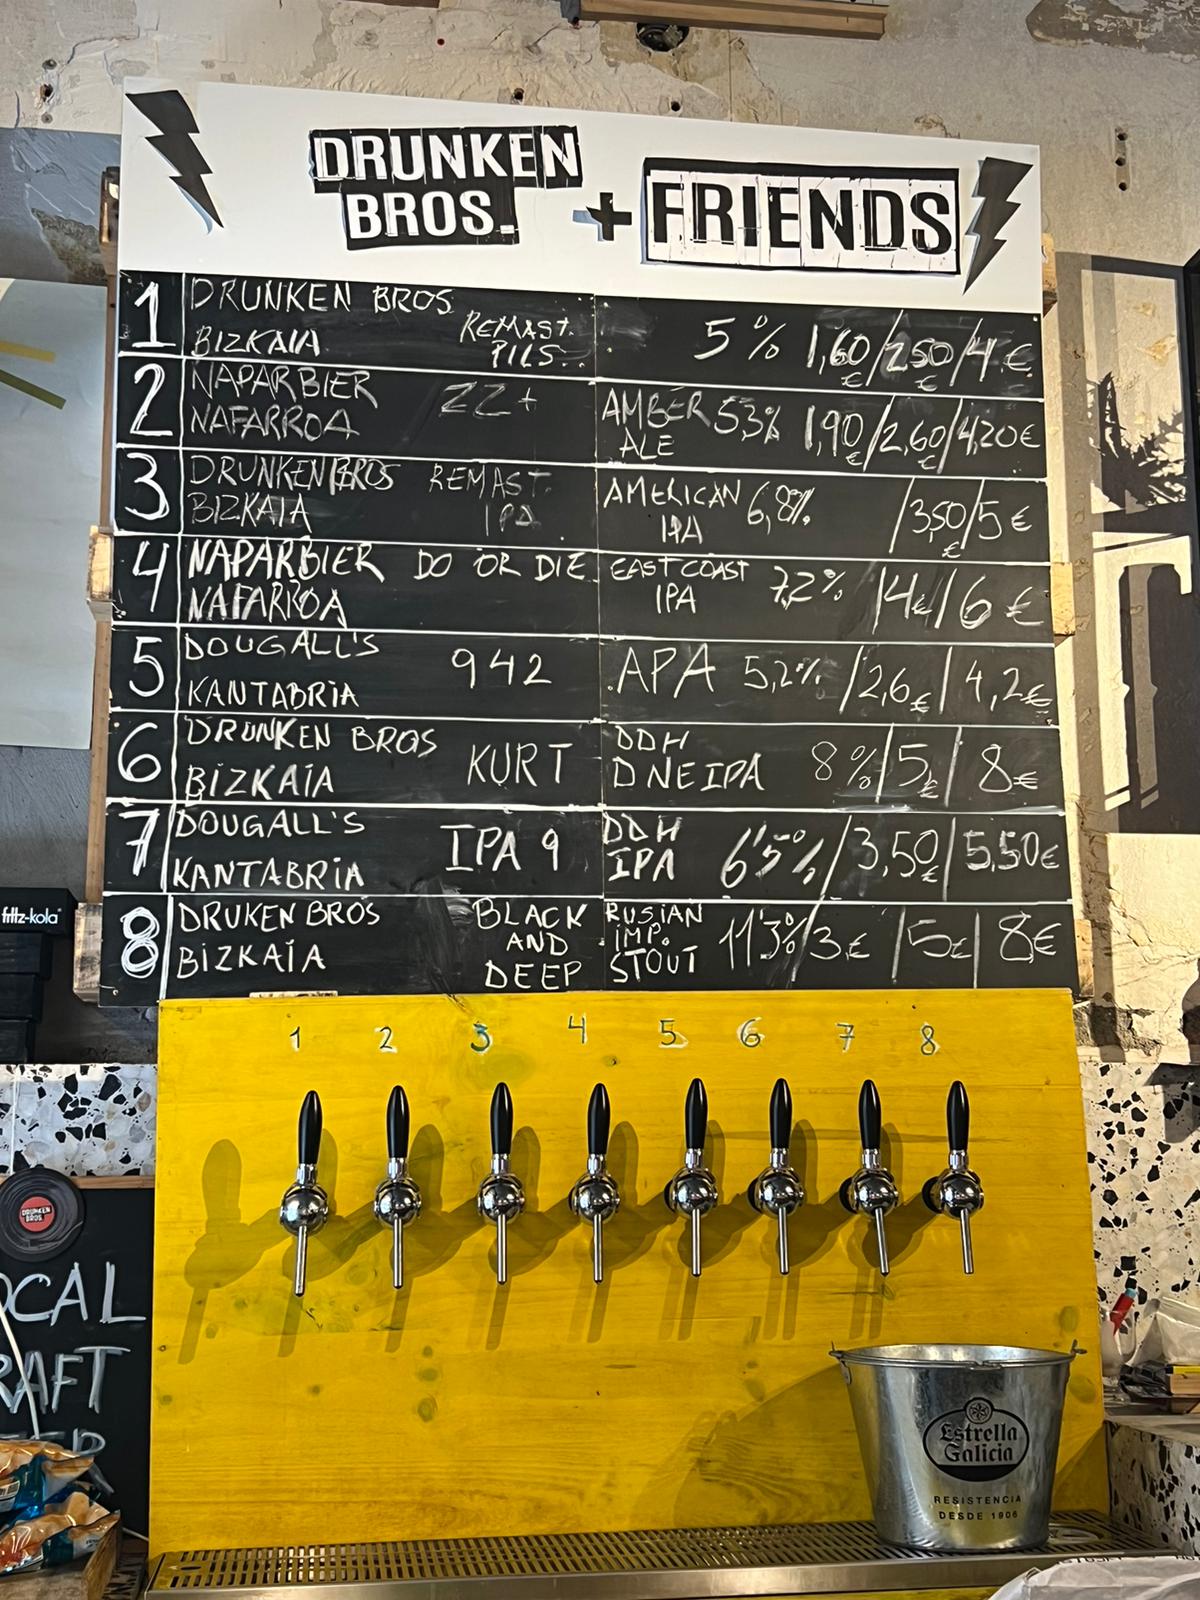 DRUNKEN
BROS.
+ FRIENDS
1 DRUNKEN BROS.
BIZKAIA
REMAST.
PILS.
5% 1,60€/2,50€/4€
2 NAPARBIER
NAFARROA
ZZ+
AMBER
ALE
5,3% 1,90€/2,60€/4,20€
3 DRUNKEN BROS
BIZKAIA
REMAST.
IPA
AMERICAN
IPA
6,8% /3,50€/5€
4 NAPARBIER DO OR DIE
NAFARROA
EAST COAST
IPA
7,2% /4€/6€
5 DOUGALL'S
KANTABRIA
942
APA 5,2% /2,6€/4,2€
6 DRUNKEN BROS
BIZKAIA
KURT
DDH
DNEIPA
8%/5€/8€
7 DOUGALL'S
KANTABRIA
IPA 9
DDH
IPA
6'5%/3,50€/5,50€
8 DRUKEN BROS
BIZKAIA
BLACK
AND
DEEP
RUSIAN
IMP.
STOUT
11'3%/3€/5€/8€
1 2 3 4 5 6 7 8
fritz-kola
DRUNKEN
BROS.
OCAL
RAFT
Estrella
Galicia
RESISTENCIA
DESDE 1906